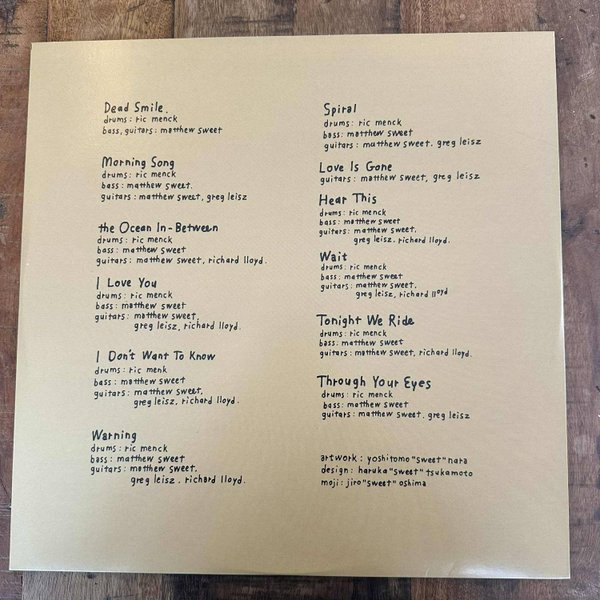 Dead Smile.
drums: ric menck
bass, guitars: matthew sweet
Morning Song
drums: ric menck
bass: matthew sweet.
guitars: matthew sweet, greg leisz
the Ocean In-Between
drums: ric menck
bass: matthew sweet
guitars: matthew sweet, richard lloyd.
I Love You
drums: ric menck
bass: matthew sweet
guitars: matthew sweet,
greg leisz, richard lloyd.
I Don't Want To Know
drums: ric menk
bass: matthew sweet
guitars: matthew sweet,
greg leisz, richard lloyd.
Warning
drums: ric menck
bass: matthew sweet
guitars: matthew sweet.
greg leisz. richard lloyd.
Spiral
drums: ric menck
bass: matthew sweet
guitars: matthew sweet. greg leisz
Love Is Gone
guitars: matthew sweet, greg leisz
Hear This
drums: ric menck
bass: matthew sweet
guitars: matthew sweet.
greg leisz. richard lloyd.
Wait
drums: ric menck
bass: matthew sweet
guitars: matthew sweet.
greg leisz, richard lloyd
Tonight We Ride
drums: ric menck
bass: matthew sweet
guitars: matthew sweet, richard lloyd.
Through Your Eyes
drums: ric menck
bass: matthew sweet
guitars: matthew sweet. greg leisz
artwork: yoshitomo "sweet" nara
design: haruka "sweet" tsukamoto
moji: jiro "sweet" oshima